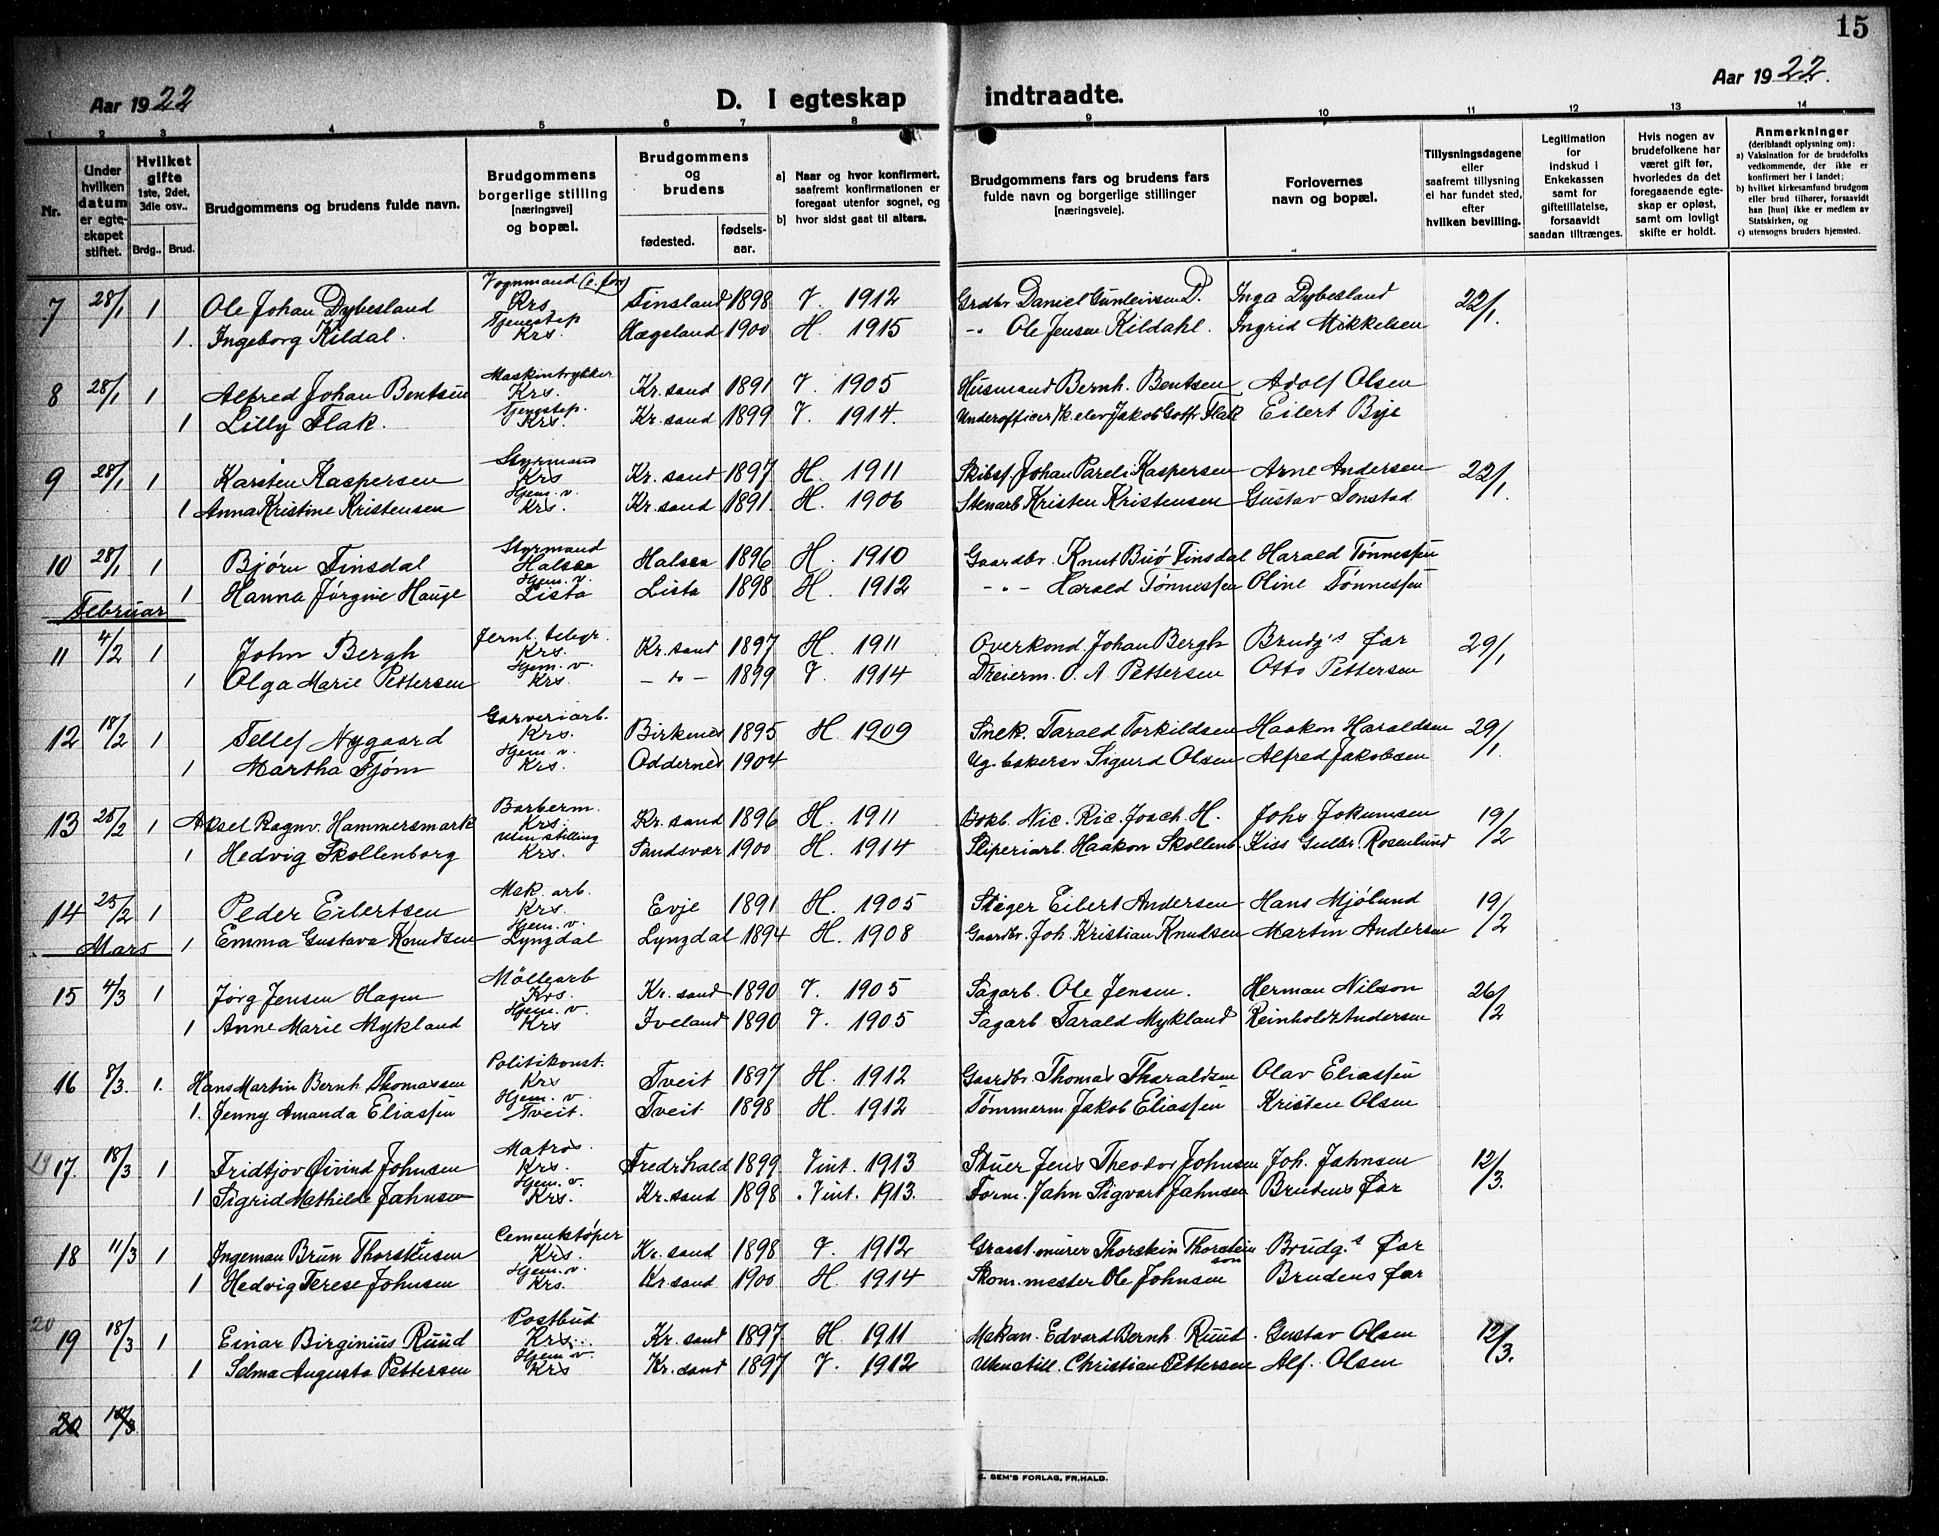 15
Aar 1922
D. I egteskap indtraadte.
Aar 1922.
1 2 3 4 5 6 7 8 9 10 11 12 13 14
Nr.
Under hvilken datum er egteskapet stiftet.
Hvilket gifte 1ste, 2det, 3die osv..
Brdg.. Brud.
Brudgommens og brudens fulde navn.
Brudgommens borgerlige stilling [næringsvei] og bopæl.
Brudgommens og brudens
fødested. fødselsaar.
a) Naar og hvor konfirmert, saafremt konfirmationen er foregaat utenfor sognet, og
b) hvor sidst gaat til alters.
Brudgommens fars og brudens fars fulde navn og borgerlige stillinger [næringsveie].
Forlovernes navn og bopæl.
Tillysningsdagene eller saafremt tillysning ei har fundet sted, efter hvilken bevilling.
Legitimation for indskud i Enkekassen samt for giftetillatelse, forsaavidt saadan tiltrænges.
Hvis nogen av brudefolkene har været gift før, hvorledes da det foregaaende egteskap er opløst, samt om lovligt skifte er holdt.
Anmerkninger (deriblandt oplysning om):
a) Vaksination for de brudefolks vedkommende, der ikke er konfirmert her i landet;
b) hvilket kirkesamfund brudgom eller brud tilhører, forsaavidt han [hun] ikke er medlem av Statskirken, og
c) utensogns bruders hjemsted.
7 28/1 1 Ole Johan Dybesland Vognmand Krs Finsland 1898 V. 1912 Grdbr. Daniel Gunleivsen D. Inga Dybesland 22/1.
1. Ingeborg Kildal. Tjenestep Krs. Hægeland 1900 H. 1915 -"- Ole Jensen Kildahl. Ingrid Mikkelsen
8 28/1 1 Alfred Johan Bentsen Maskintrykker Krs. Kr. sand 1891 V. 1905 Husmand Bernh. Bentsen Adolf Olsen
1 Lilly Flak. Tjenestep. Krs. Kr. sand 1899 V. 1914. Underofficer elev Jakob Gotfr Flak Eilert Bye
9 28/1 1 Karsten Kaspersen Styrmand Krs Kr. sand 1897 H. 1911 Skibsf. Johan Pareli Kaspersen Arne Andersen 22/1.
1 Anna Kristine Kristensen Hjem. v. Krs. Kr. sand 1891. H. 1906 Stenarb Kristen Kristensen Gustav Tonstad
10 28/1 1 Bjørn Finsdal Styrmand Halsaa Halsaa 1896 H. 1910 Gaardbr. Knut Buø Finsdal Harald Tønnessen
1 Hanna Jørgine Hauge Hjem. v. Lista Lista 1898 H. 1912 -"- Harald Tønnessen Oline Tønnessen
Februar
11 4/2 1 John Bergh Jernb. telegr. Krs. Kr. sand 1897 H. 1911 Overkond. Johan Bergh Brudg's far 29/1
1 Olga Marie Pettersen Hjem. v. Krs. - " - 1899 V. 1914 Dreierm. O. A. Pettersen Otto Pettersen
12 18/2 1 Tellef Nygaard Garveriarb. Krs. Birkenes 1895 H. 1909 Snek. Tarald Torkildsen Haakon Haraldsen 29/1
1 Martha Fjøm Hjem. v. Krs. Oddernes 1904 Ug. bakersv Sigurd Olsen Alfred Jakobsen
13 25/2 1 Aksel Ragnv. Hammersmark Barberm. Krs. Kr. sand 1896 H. 1911 Bokb. Nic. Ric. Joach. H. Johs Jokumsen 19/2
1 Hedvig Skollenborg Uten stilling Krs. Sandsvær 1900 H. 1914 Sliperiarb. Haakon Skollenb. Kiss Gulbr. Rosenlund
14 25/2 1 Peder Eilertsen Mek. arb. Krs. Evje 1891 H. 1905 Stiger Eilert Andersen Hans Mjølund 19/2
1 Emma Gustava Knudsen Hjem. v. Lyngdal Lyngdal 1894 H. 1908 Gaardbr. Joh. Kristian Knudsen Martin Andersen
Mars
15 4/3 1 Jørg Jensen Hagen Møllearb Krs. Kr. sand 1890 V. 1905 Sagarb. Ole Jensen. Herman Nilson 26/2
1 Anne Marie Mykland Hjem. v. Krs Iveland 1890 V. 1905 Sagarb Tarald Mykland Reinholdt Andersen
16 8/3. 1. Hans Martin Bernh Thomassen Politikonst. Krs Tveit 1897 H. 1912 Gaardbr. Thomas Tharaldsen Olav Eliassen
1. Jenny Amanda Eliassen Hjem. v. Tveit. Tveit 1898 H. 1912 Tømmerm Jakob Eliassen Kristen Olsen
19 17. 18/3 1 Fridtjov Øivind Johnsen Matros. Krs. Fredrhald 1899 Vint. 1913 Stuer Jens Theodor Johnsen Joh. Jahnsen 12/3.
1 Sigrid Mathilde Jahnsen Hjem. v. Krs. Kr. sand 1898 Vint. 1913. Form. Jahn Sigvart Jahnsen Brudens far
18 11/3 1 Ingeman Brun Thorstensen Cementstøper Krs. Kr. sand 1898 V. 1912 murer Thorstein Thorsteinson Brudg.s far
1 Hedvig Terese Johnsen Hjem. v. Krs. Kr. sand 1900 H. 1914 Skom. mester Ole Johnsen Brudens far
20 19 18/3 1 Einar Birginius Ruud Postbud Krs. Kr. sand 1897 H. 1911 Mekan. Edvard Bernh. Ruud. Gustav Olsen 12/3.
1 Selma Augusta Pettersen Hjem v. Krs Kr. sand 1897 V. 1912 Uten still. Christian Pettersen Alf. Olsen
20 18/3
SEM'S FORLAG, FR.HALD.